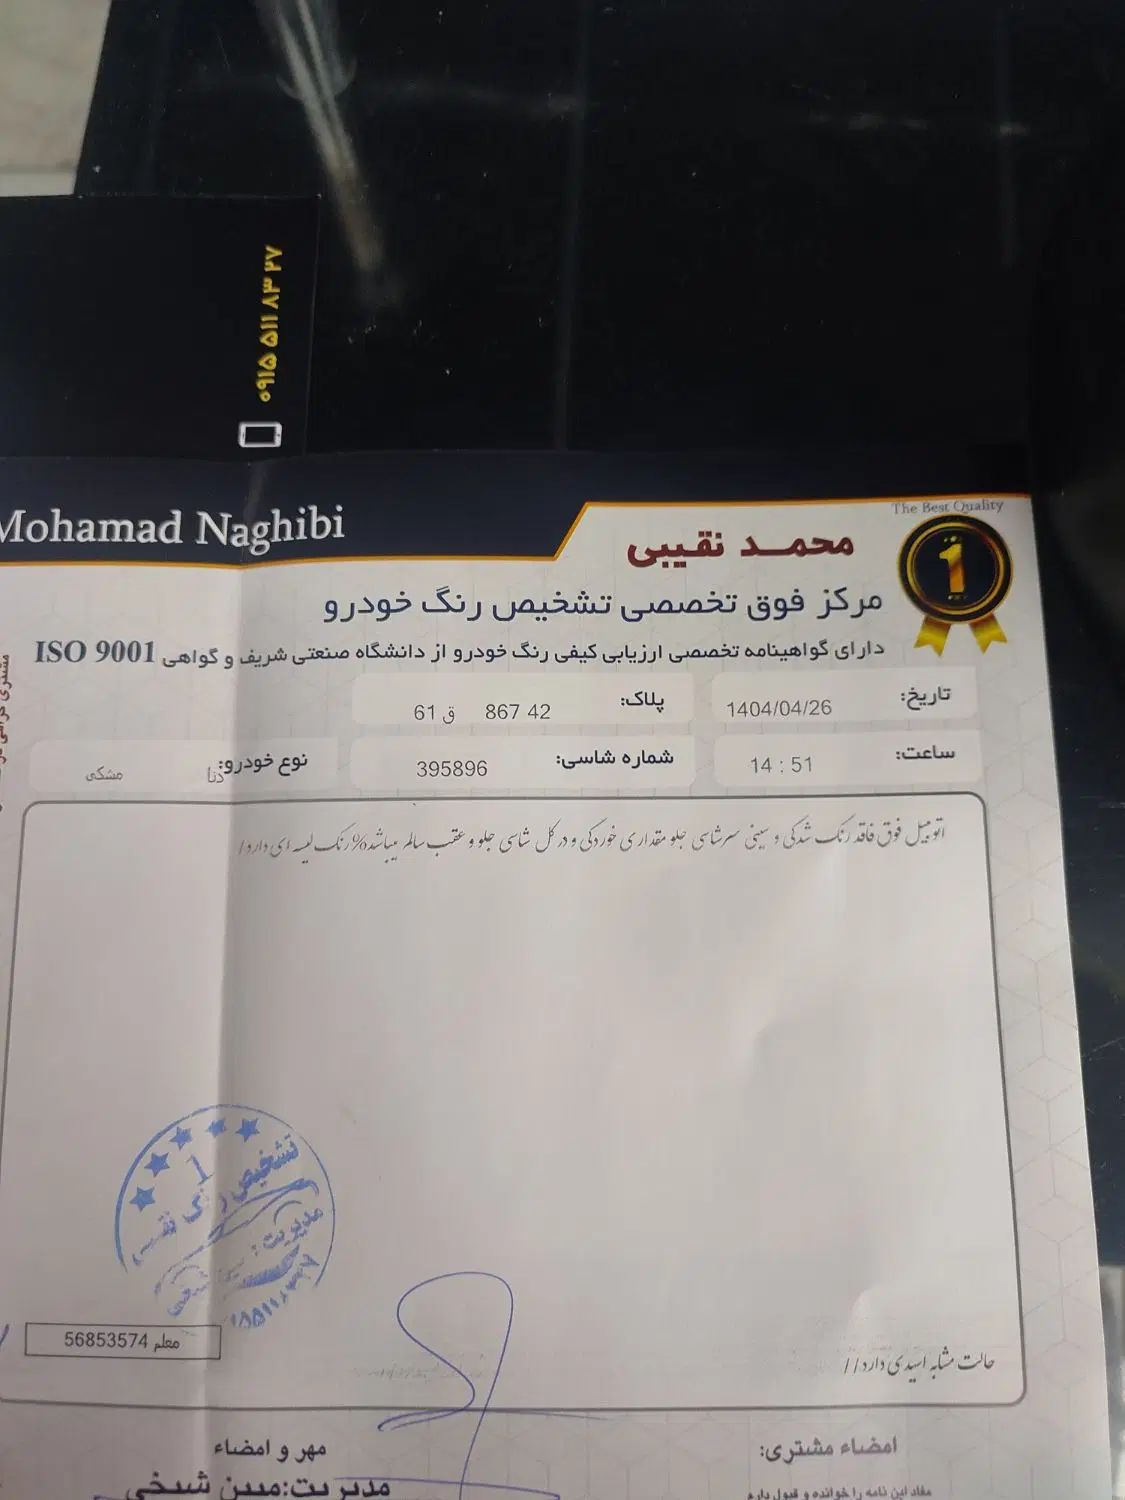 ۰۹۱۵ ۵۱۱ ۸۳ ۲۷
The Best Quality
Mohamad Naghibi
محمد نقیبی
1
مرکز فوق تخصصی تشخیص رنگ خودرو
دارای گواهینامه تخصصی ارزیابی کیفی رنگ خودرو از دانشگاه صنعتی شریف و گواهی ISO 9001
تاریخ: 1404/04/26 پلاک: 42 867 ق 61
ساعت: 14 : 51 شماره شاسی: 395896 نوع خودرو: دنا مشکی
اتومبیل فوق فاقد رنگ شدگی و سینی سرشاسی جلو مقداری خوردگی و در کل شاسی جلو و عقب سالم میباشد%رنگ لیسه ای دارد/
تشخیص رنگ
مدیریت:
معلم 56853574
حالت مشابه اسیدی دارد//
امضاء مشتری:
مهر و امضاء
مفاد این نامه را خوانده و قبول دارم
مدیریت:مبین شیخی
مشتری گرامی